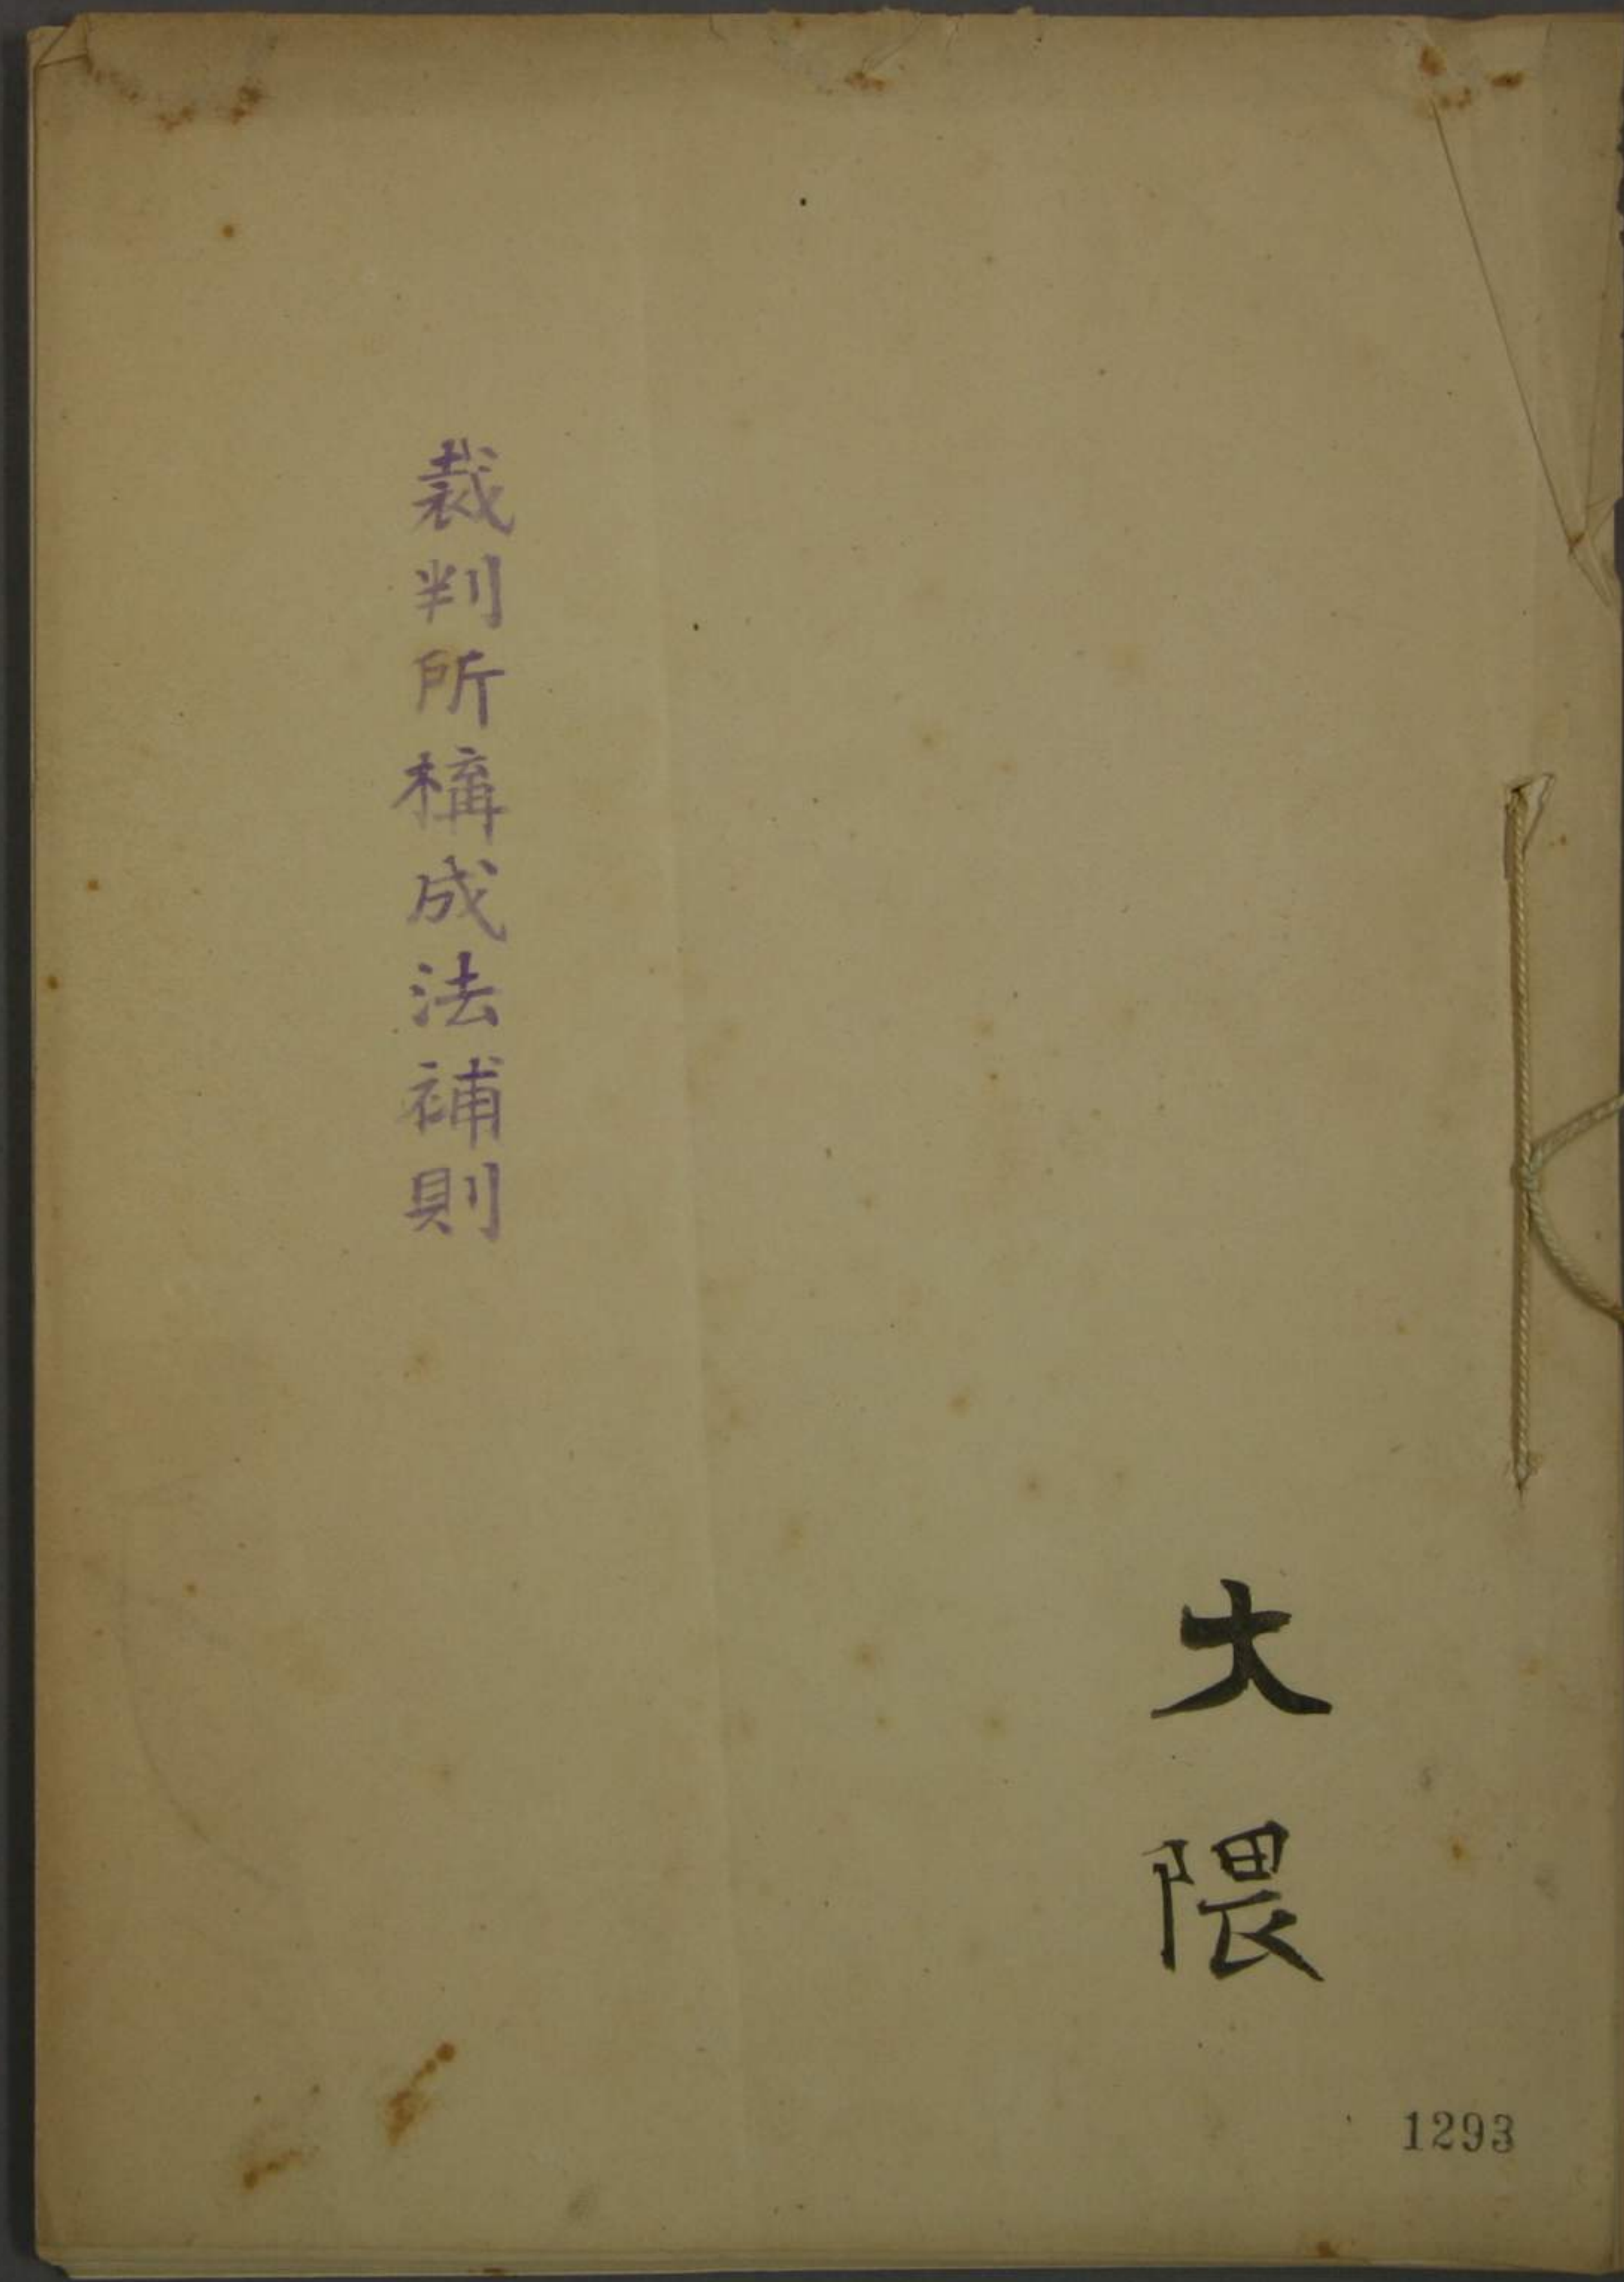 大隈
裁判所構成法補則
1293